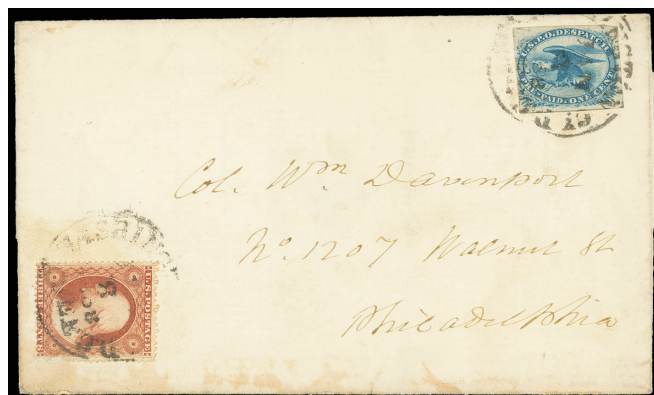 U.S.P.O. DESPATCH
PRE-PAID. ONE CENT
Col. Wm Davenport
No. 1207 Walnut St
Philadelphia
U.S. POSTAGE